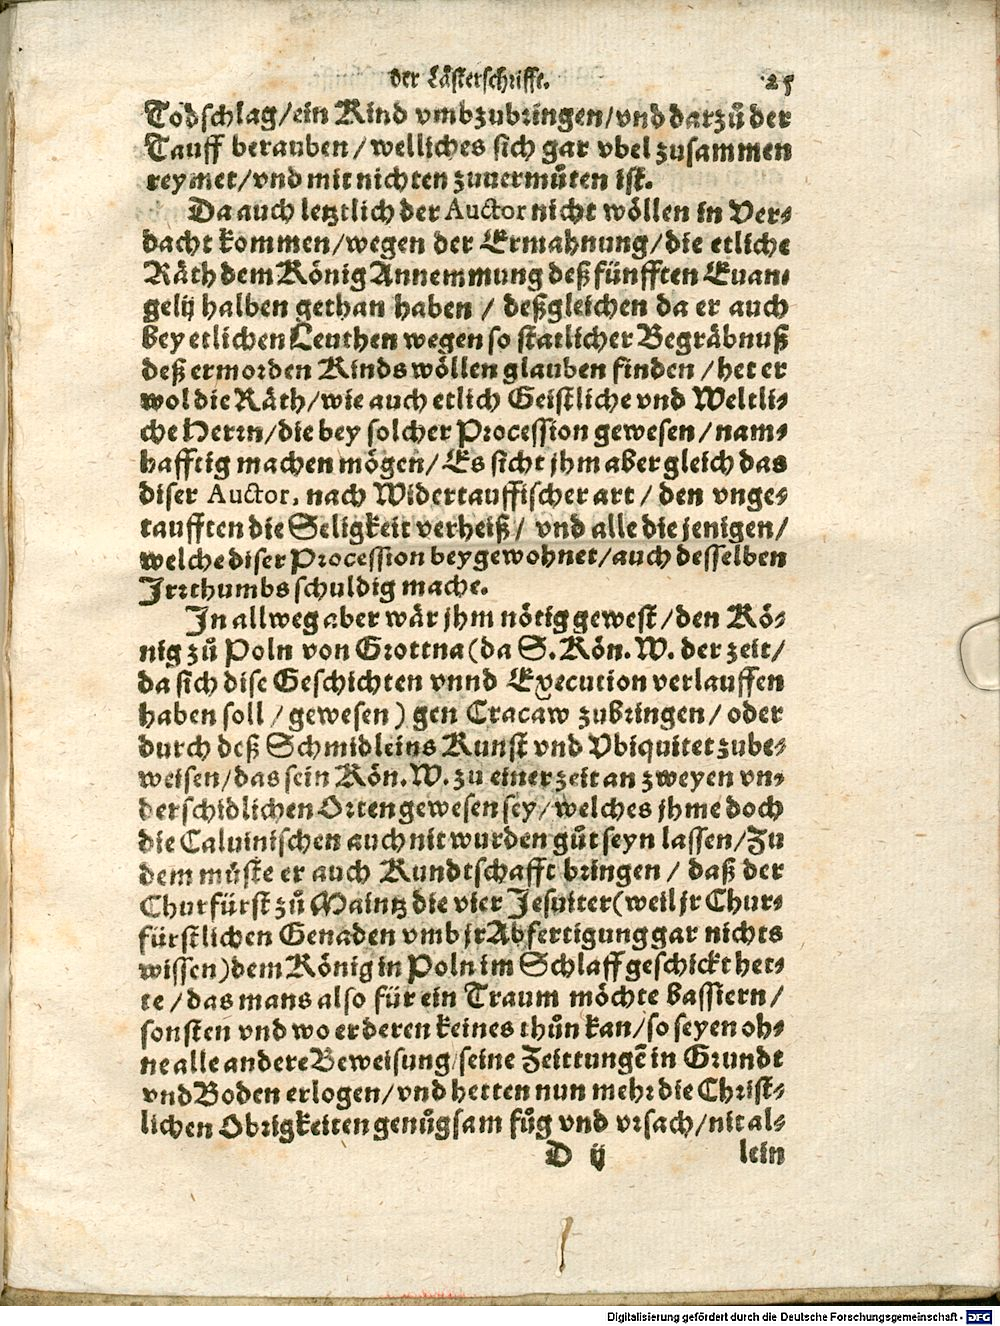 der Lästerschrifft. 25
Todschlag/ein Kind vmbzubringen/vnd darzů der
Tauff berauben/welliches sich gar vbel zusammen
reymet/vnd mit nichten zuuermůten ist.
Da auch letztlich der Auctor nicht wöllen in Ver-
dacht kommen/wegen der Ermahnung/die etliche
Räth dem König Annemmung deß fünfften Euan-
gelij halben gethan haben / deßgleichen da er auch
bey etlichen Leuthen wegen so statlicher Begräbnuß
deß ermorden Kinds wöllen glauben finden/het er
wol die Räth/wie auch etlich Geistliche vnd Weltli-
che Herrn/die bey solcher Procession gewesen/nam-
hafftig machen mögen/Es sicht jhm aber gleich das
diser Auctor, nach Widertauffischer art/den vnge-
taufften die Seligkeit verheiß/ vnd alle die jenigen/
welche diser Procession beygewohnet/auch desselben
Irrthumbs schuldig mache.
In allweg aber wär jhm nötig gewest/den Kö-
nig zů Poln von Grottna(da S. Kön. W. der zeit/
da sich dise Geschichten vnnd Execution verlauffen
haben soll/gewesen) gen Cracaw zubringen/oder
durch deß Schmidleins Kunst vnd Vbiquitet zube-
weisen/das sein Kön. W. zu einer zeit an zweyen vn-
derschidlichen Orten gewesen sey/welches jhme doch
die Caluinischen auch nit wurden gůt seyn lassen/Zu
dem müste er auch Kundtschafft bringen/ daß der
Churfürst zů Maintz die vier Jesuiter(weil jr Chur-
fürstlichen Genaden vmb jr Abfertigung gar nichts
wissen)dem König in Poln im Schlaff geschickt het-
te/das mans also für ein Traum möchte bassiern/
sonsten vnd wo er deren keines thůn kan/so seyen oh-
ne alle andere Beweisung/seine Zeittungē in Grundt
vnd Boden erlogen/vnd hetten nun mehr die Christ-
lichen Obrigkeiten genůgsam fůg vnd vrsach/nit al-
D ij lein
Digitalisierung gefördert durch die Deutsche Forschungsgemeinschaft - DFG